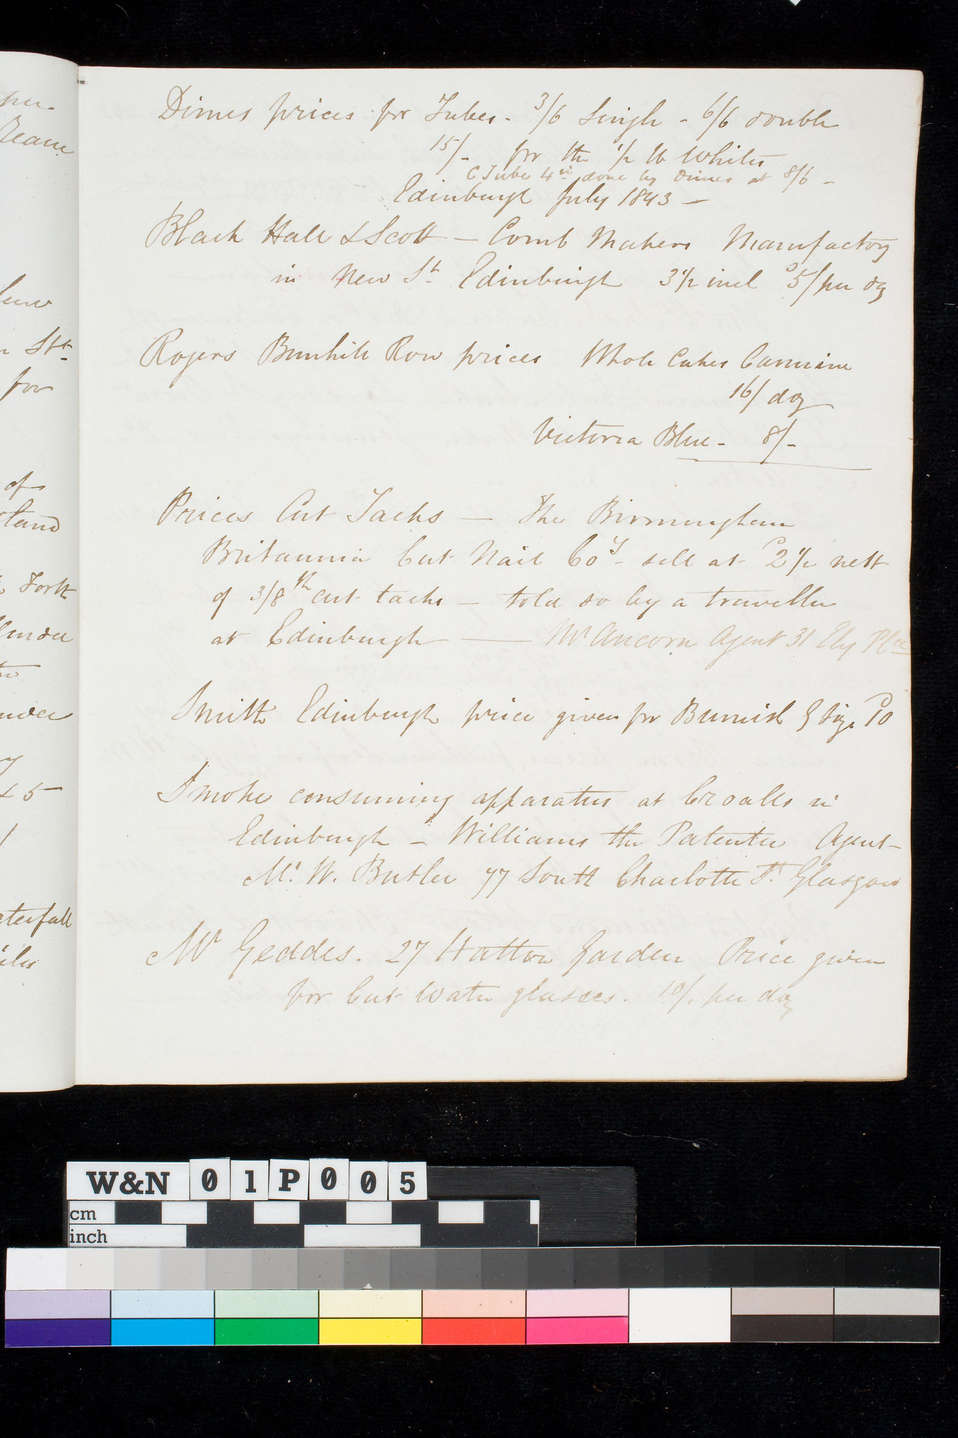 Dimes prices for Tubes - 3/6 Single - 6/6 double
15/- for the 1/2 lb Whites
C Tube 4in done by Dimes at 8/6 -
Edinburgh July 1843 -
Black Hall & Scott - Comb Makers Manufactory
in New St Edinburgh 3 1/2 inch 5/ per dz
Rogers Bunhill Row prices Whole Cakes Carmine
16/ doz
Victoria Blue - 8/-
Prices Cut Tacks - The Birmingham
Britannia Cut Nail Coy - sell at D 2 1/2 nett
of 3/8th cut tacks - told so by a traveller
at Edinburgh - Mr Ancorn Agent 31 Ely Plce
Smith Edinburgh price given for
Smoke consuming apparatus at Croalls in
Edinburgh - Williams the Patentee Agent -
Mr. W. Butler 77 South Charlotte St Glasgow
Mr Geddes. 27 Hatton Garden Price given
for Cut Water glasses. 10/. per doz
per
Stt
for
of
Forth
& 5 -
aterfall
W&N 01P005
cm
inch